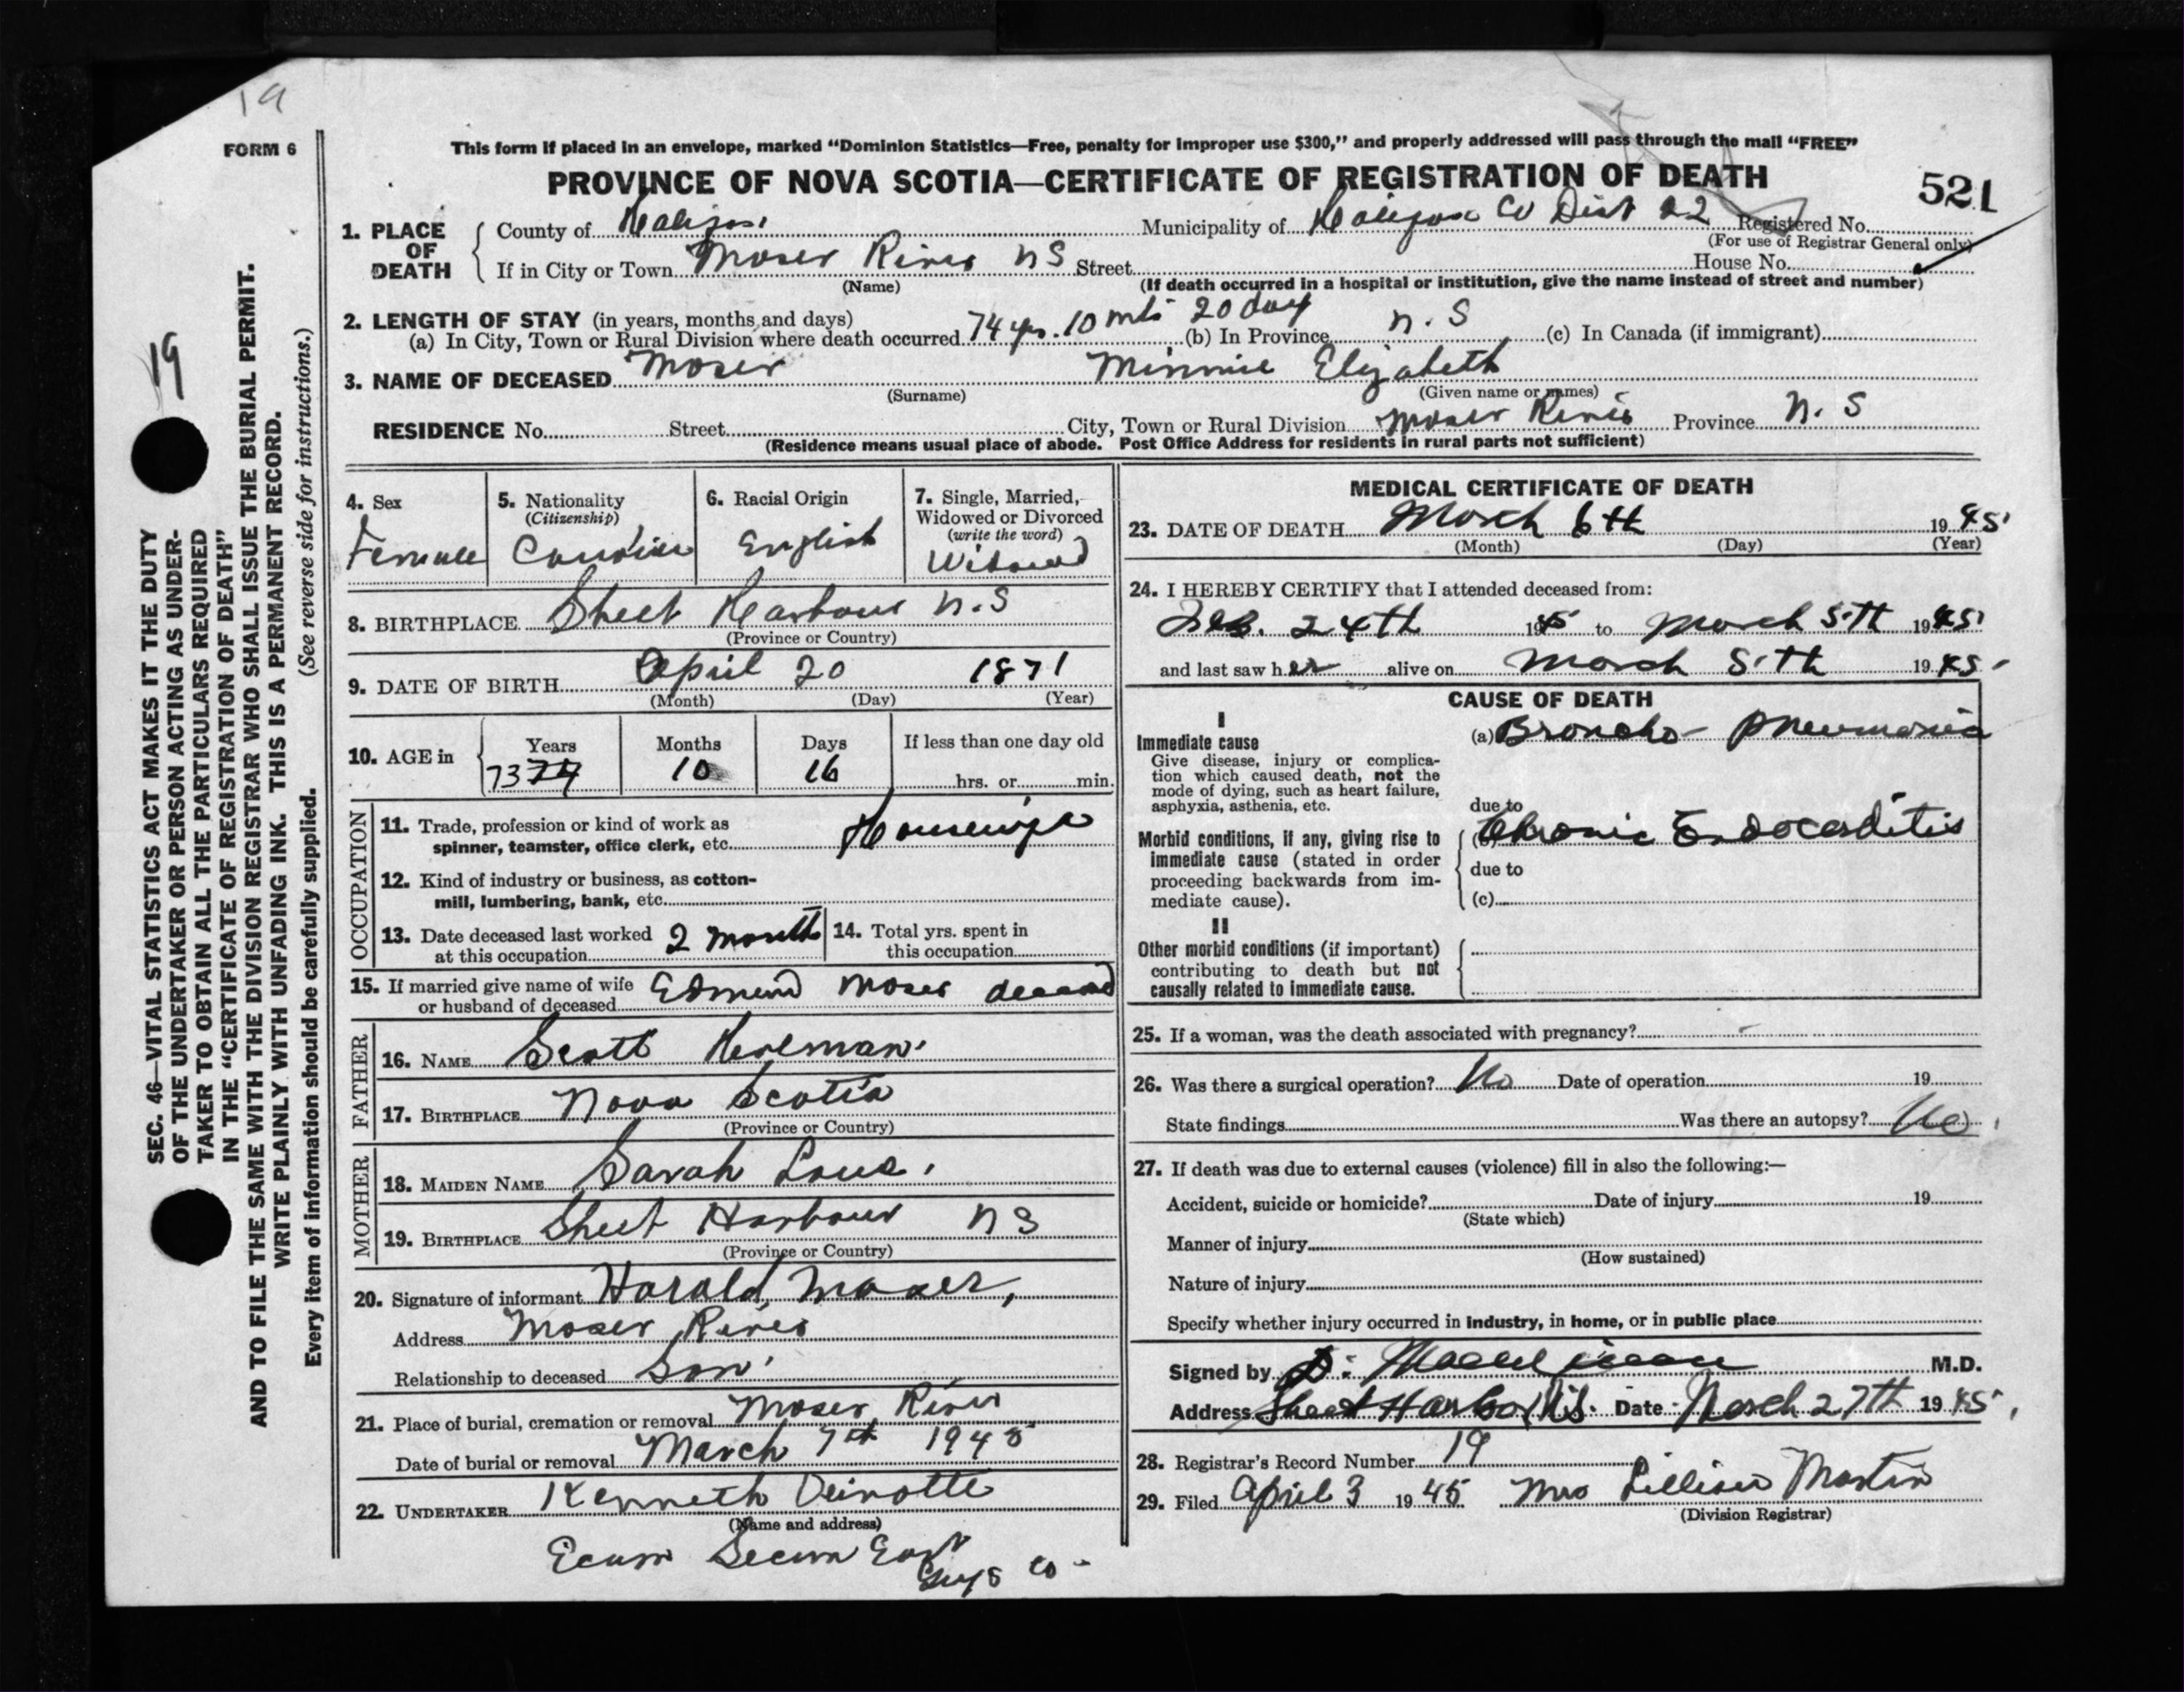 19
FORM 6
This form if placed in an envelope, marked “Dominion Statistics—Free, penalty for improper use $300,” and properly addressed will pass through the mail “FREE”
PROVINCE OF NOVA SCOTIA—CERTIFICATE OF REGISTRATION OF DEATH
521
1. PLACE OF DEATH
County of Halifax
Municipality of Halifax Co Dist 22 Registered No.
(For use of Registrar General only)
If in City or Town Moser River NS Street House No.
(Name) (If death occurred in a hospital or institution, give the name instead of street and number)
2. LENGTH OF STAY (in years, months and days)
(a) In City, Town or Rural Division where death occurred 74 yrs. 10 mts 20 day (b) In Province N. S (c) In Canada (if immigrant)
3. NAME OF DECEASED Moser Minnie Elizabeth
(Surname) (Given name or names)
RESIDENCE No. Street City, Town or Rural Division Moser River Province N. S
(Residence means usual place of abode. Post Office Address for residents in rural parts not sufficient)
4. Sex
Female
5. Nationality
(Citizenship)
Canadian
6. Racial Origin
English
7. Single, Married, Widowed or Divorced
(write the word)
Widowed
8. BIRTHPLACE Sheet Harbour N.S
(Province or Country)
9. DATE OF BIRTH April 20 1871
(Month) (Day) (Year)
10. AGE in
Years Months Days If less than one day old
73 74 10 16 hrs. or min.
OCCUPATION
11. Trade, profession or kind of work as
spinner, teamster, office clerk, etc. Housewife
12. Kind of industry or business, as cotton-
mill, lumbering, bank, etc.
13. Date deceased last worked
at this occupation 2 month
14. Total yrs. spent in
this occupation
15. If married give name of wife
or husband of deceased Edmund Moser deceased
FATHER
16. NAME Scott
17. BIRTHPLACE Nova Scotia
(Province or Country)
MOTHER
18. MAIDEN NAME Sarah
19. BIRTHPLACE Sheet Harbour N S
(Province or Country)
20. Signature of informant Harold Moser,
Address Moser River
Relationship to deceased Son
21. Place of burial, cremation or removal Moser River
Date of burial or removal March 7th 1945
22. UNDERTAKER Kenneth
(Name and address)
Ecum Secum East
Guys Co
MEDICAL CERTIFICATE OF DEATH
23. DATE OF DEATH March 6th 1945
(Month) (Day) (Year)
24. I HEREBY CERTIFY that I attended deceased from:
Feb. 24th 1945 to March 5th 1945
and last saw her alive on March 5th 1945
CAUSE OF DEATH
I
Immediate cause
Give disease, injury or complica-
tion which caused death, not the
mode of dying, such as heart failure,
asphyxia, asthenia, etc.
(a) Broncho-Pneumonia
due to
Morbid conditions, if any, giving rise to
immediate cause (stated in order
proceeding backwards from im-
mediate cause).
(b) Chronic Endocarditis
due to
(c)
II
Other morbid conditions (if important)
contributing to death but not
causally related to immediate cause.
25. If a woman, was the death associated with pregnancy? -
26. Was there a surgical operation? No Date of operation 19
State findings Was there an autopsy? No
27. If death was due to external causes (violence) fill in also the following:—
Accident, suicide or homicide? Date of injury 19
(State which)
Manner of injury
(How sustained)
Nature of injury
Specify whether injury occurred in industry, in home, or in public place
Signed by M.D.
Address Sheet Harbor N.S. Date March 27th 1945
28. Registrar's Record Number 19
29. Filed April 3 1945 Mrs Lillian Martin
(Division Registrar)
19
SEC. 46—VITAL STATISTICS ACT MAKES IT THE DUTY
OF THE UNDERTAKER OR PERSON ACTING AS UNDER-
TAKER TO OBTAIN ALL THE PARTICULARS REQUIRED
IN THE “CERTIFICATE OF REGISTRATION OF DEATH”
AND TO FILE THE SAME WITH THE DIVISION REGISTRAR WHO SHALL ISSUE THE BURIAL PERMIT.
WRITE PLAINLY WITH UNFADING INK. THIS IS A PERMANENT RECORD.
Every item of information should be carefully supplied. (See reverse side for instructions.)